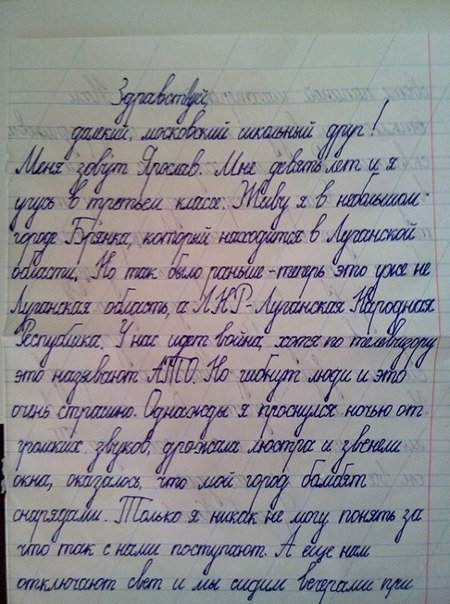 Здравствуй,
далекий, московский школьный друг!
Меня зовут Ярослав. Мне девять лет и я
учусь в третьем классе. Живу я в небольшом
городе Брянка, который находится в Луганской
области. Но так было раньше - теперь это уже не
Луганская область, а ЛНР - Луганская Народная
Республика. У нас идет война, хотя по телевизору
это называют АТО. Но гибнут люди и это
очень страшно. Однажды я проснулся ночью от
громких звуков, дрожала люстра и звенели
окна, оказалось, что мой город бомбят
снарядами. Только я никак не могу понять за
что так с нами поступают. А еще нам
отключают свет и мы сидим вечерами при